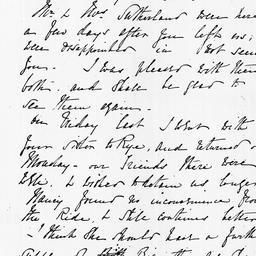 Mr. & Mrs. Sutherland were here
a few days after you left us;
were disappointed in not seeing
you. I was pleased with them
both, and shall be glad to
see them again.
On Friday last I went with
your  to Rye, and returned on
Monday - our friends there were
 & wished to detain us longer
Nancy found no inconvenience from
the Ride, & still continues better
- I think she should have a further